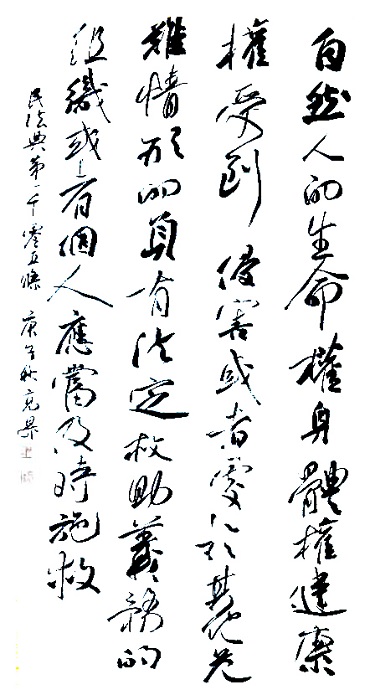 自然人的生命權身體權健康
權受到侵害或者處於其他危
難情形的負有法定救助義務的
組織或者個人應當及時施救
民法典第一千零五條 庚子秋